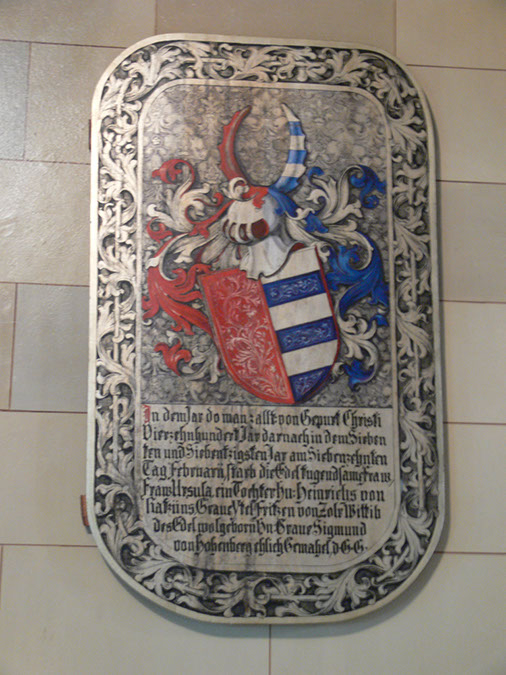 In dem Jar do man zallt von Gepurt Christi
Vierzehnhundert Jar darnach in dem Sieben
ten und Siebentzigsten Jar am Siebenzehnten
Tag Februarii starb die Edel tugendsame Fraw
Fraw Ursula ein Tochter Hn: Heinrichs von
Razüns Grave Itel Fritzen von Zolr Wittib
des Edel wolgeborn Hn Grave Sigmund
von Hohenberg ehlich Gemahel d.G.G.